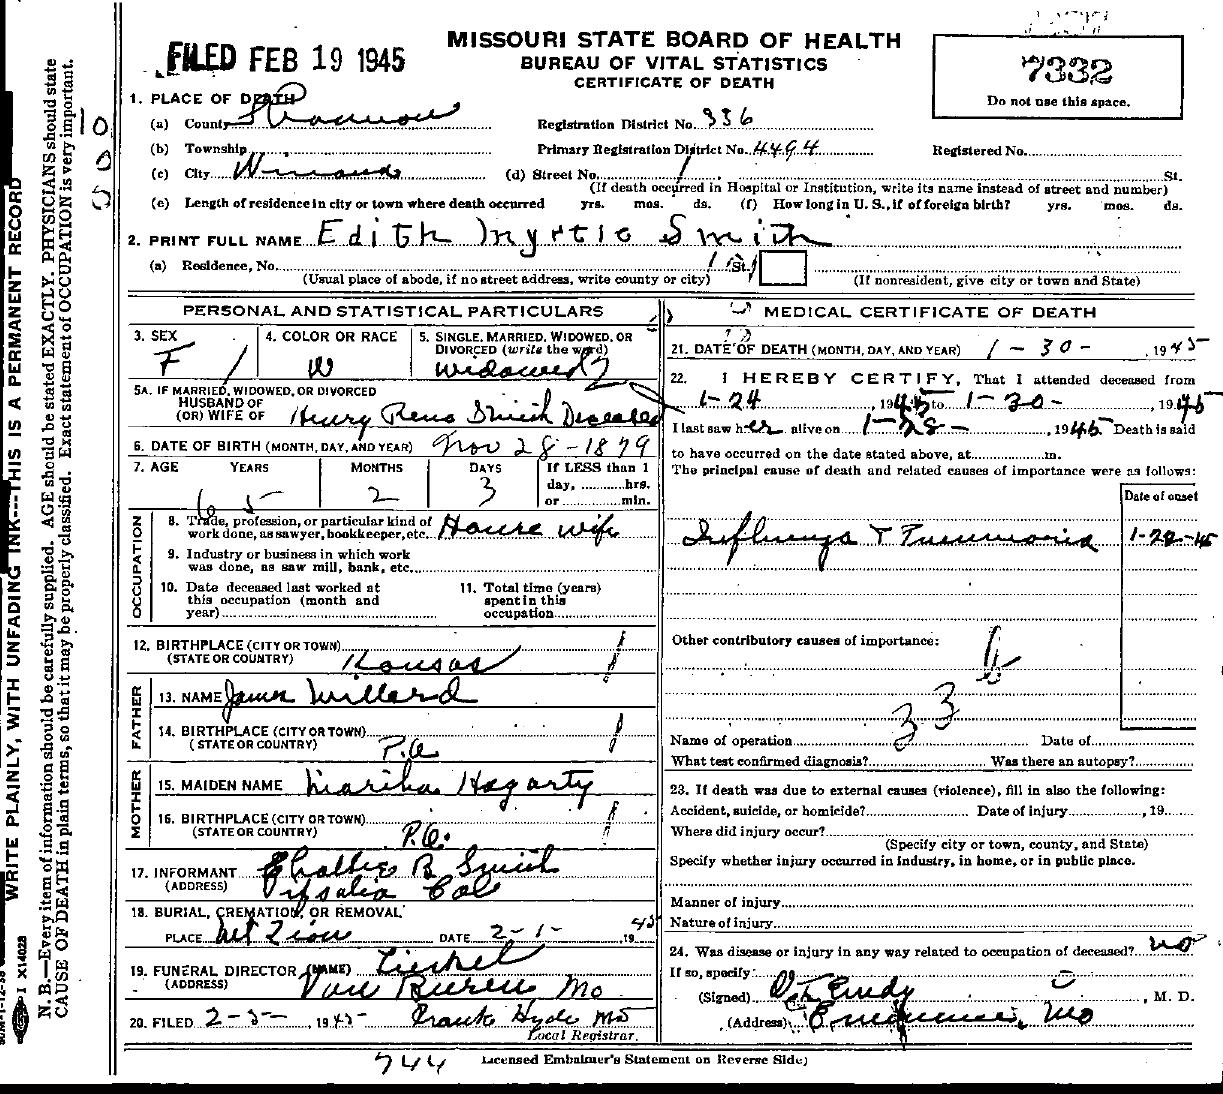 FILED FEB 19 1945
MISSOURI STATE BOARD OF HEALTH
BUREAU OF VITAL STATISTICS
CERTIFICATE OF DEATH
7332
Do not use this space.
1. PLACE OF DEATH
(a) County Shannon
Registration District No. 336
(b) Township
Primary Registration District No. 4494
Registered No.
(c) City Winona
(d) Street No. St.
(If death occurred in Hospital or Institution, write its name instead of street and number)
(e) Length of residence in city or town where death occurred yrs. mos. ds. (f) How long in U. S., if of foreign birth? yrs. mos. ds.
2. PRINT FULL NAME Edith Myrtle Smith
(a) Residence, No. St.
(Usual place of abode, if no street address, write county or city)
(If nonresident, give city or town and State)
PERSONAL AND STATISTICAL PARTICULARS
3. SEX F
4. COLOR OR RACE W
5. SINGLE, MARRIED, WIDOWED, OR
DIVORCED (write the word)
Widowed 2
5A. IF MARRIED, WIDOWED, OR DIVORCED
HUSBAND OF
(OR) WIFE OF Henry Reno Smith Deceased
6. DATE OF BIRTH (MONTH, DAY, AND YEAR) Nov 28-1879
7. AGE YEARS MONTHS DAYS If LESS than 1
day, hrs.
or min.
65 2 3
OCCUPATION
8. Trade, profession, or particular kind of
work done, as sawyer, bookkeeper, etc. House wife
9. Industry or business in which work
was done, as saw mill, bank, etc.
10. Date deceased last worked at
this occupation (month and
year)
11. Total time (years)
spent in this
occupation
12. BIRTHPLACE (CITY OR TOWN)
(STATE OR COUNTRY) Kansas
FATHER
13. NAME James Willard
14. BIRTHPLACE (CITY OR TOWN)
(STATE OR COUNTRY) P.A.
MOTHER
15. MAIDEN NAME Martha Hagarty
16. BIRTHPLACE (CITY OR TOWN)
(STATE OR COUNTRY) P.A.
17. INFORMANT B Smith
(ADDRESS) Cal
18. BURIAL, CREMATION, OR REMOVAL
PLACE Mt Zion DATE 2-1- 1945
19. FUNERAL DIRECTOR (NAME)
(ADDRESS) Van Buren Mo
20. FILED 2-5- 1945 Frank Hyde MD
Local Registrar.
MEDICAL CERTIFICATE OF DEATH
21. DATE OF DEATH (MONTH, DAY, AND YEAR) 1-30-, 1945
22. I HEREBY CERTIFY, That I attended deceased from
1-24, 1945 to 1-30-, 1945
I last saw her alive on 1-28-, 1945 Death is said
to have occurred on the date stated above, at m.
The principal cause of death and related causes of importance were as follows:
Date of onset
Influenza & Pneumonia 1-22-45
Other contributory causes of importance:
33
Name of operation Date of
What test confirmed diagnosis? Was there an autopsy?
23. If death was due to external causes (violence), fill in also the following:
Accident, suicide, or homicide? Date of injury, 19
Where did injury occur?
(Specify city or town, county, and State)
Specify whether injury occurred in industry, in home, or in public place.
Manner of injury
Nature of injury
24. Was disease or injury in any way related to occupation of deceased? no
If so, specify
(Signed) Eudy, M. D.
(Address) Eminence, Mo
744
Licensed Embalmer's Statement on Reverse Side)
WRITE PLAINLY, WITH UNFADING INK---THIS IS A PERMANENT RECORD
N. B.—Every item of information should be carefully supplied. AGE should be stated EXACTLY. PHYSICIANS should state
CAUSE OF DEATH in plain terms, so that it may be properly classified. Exact statement of OCCUPATION is very important.
I X14028